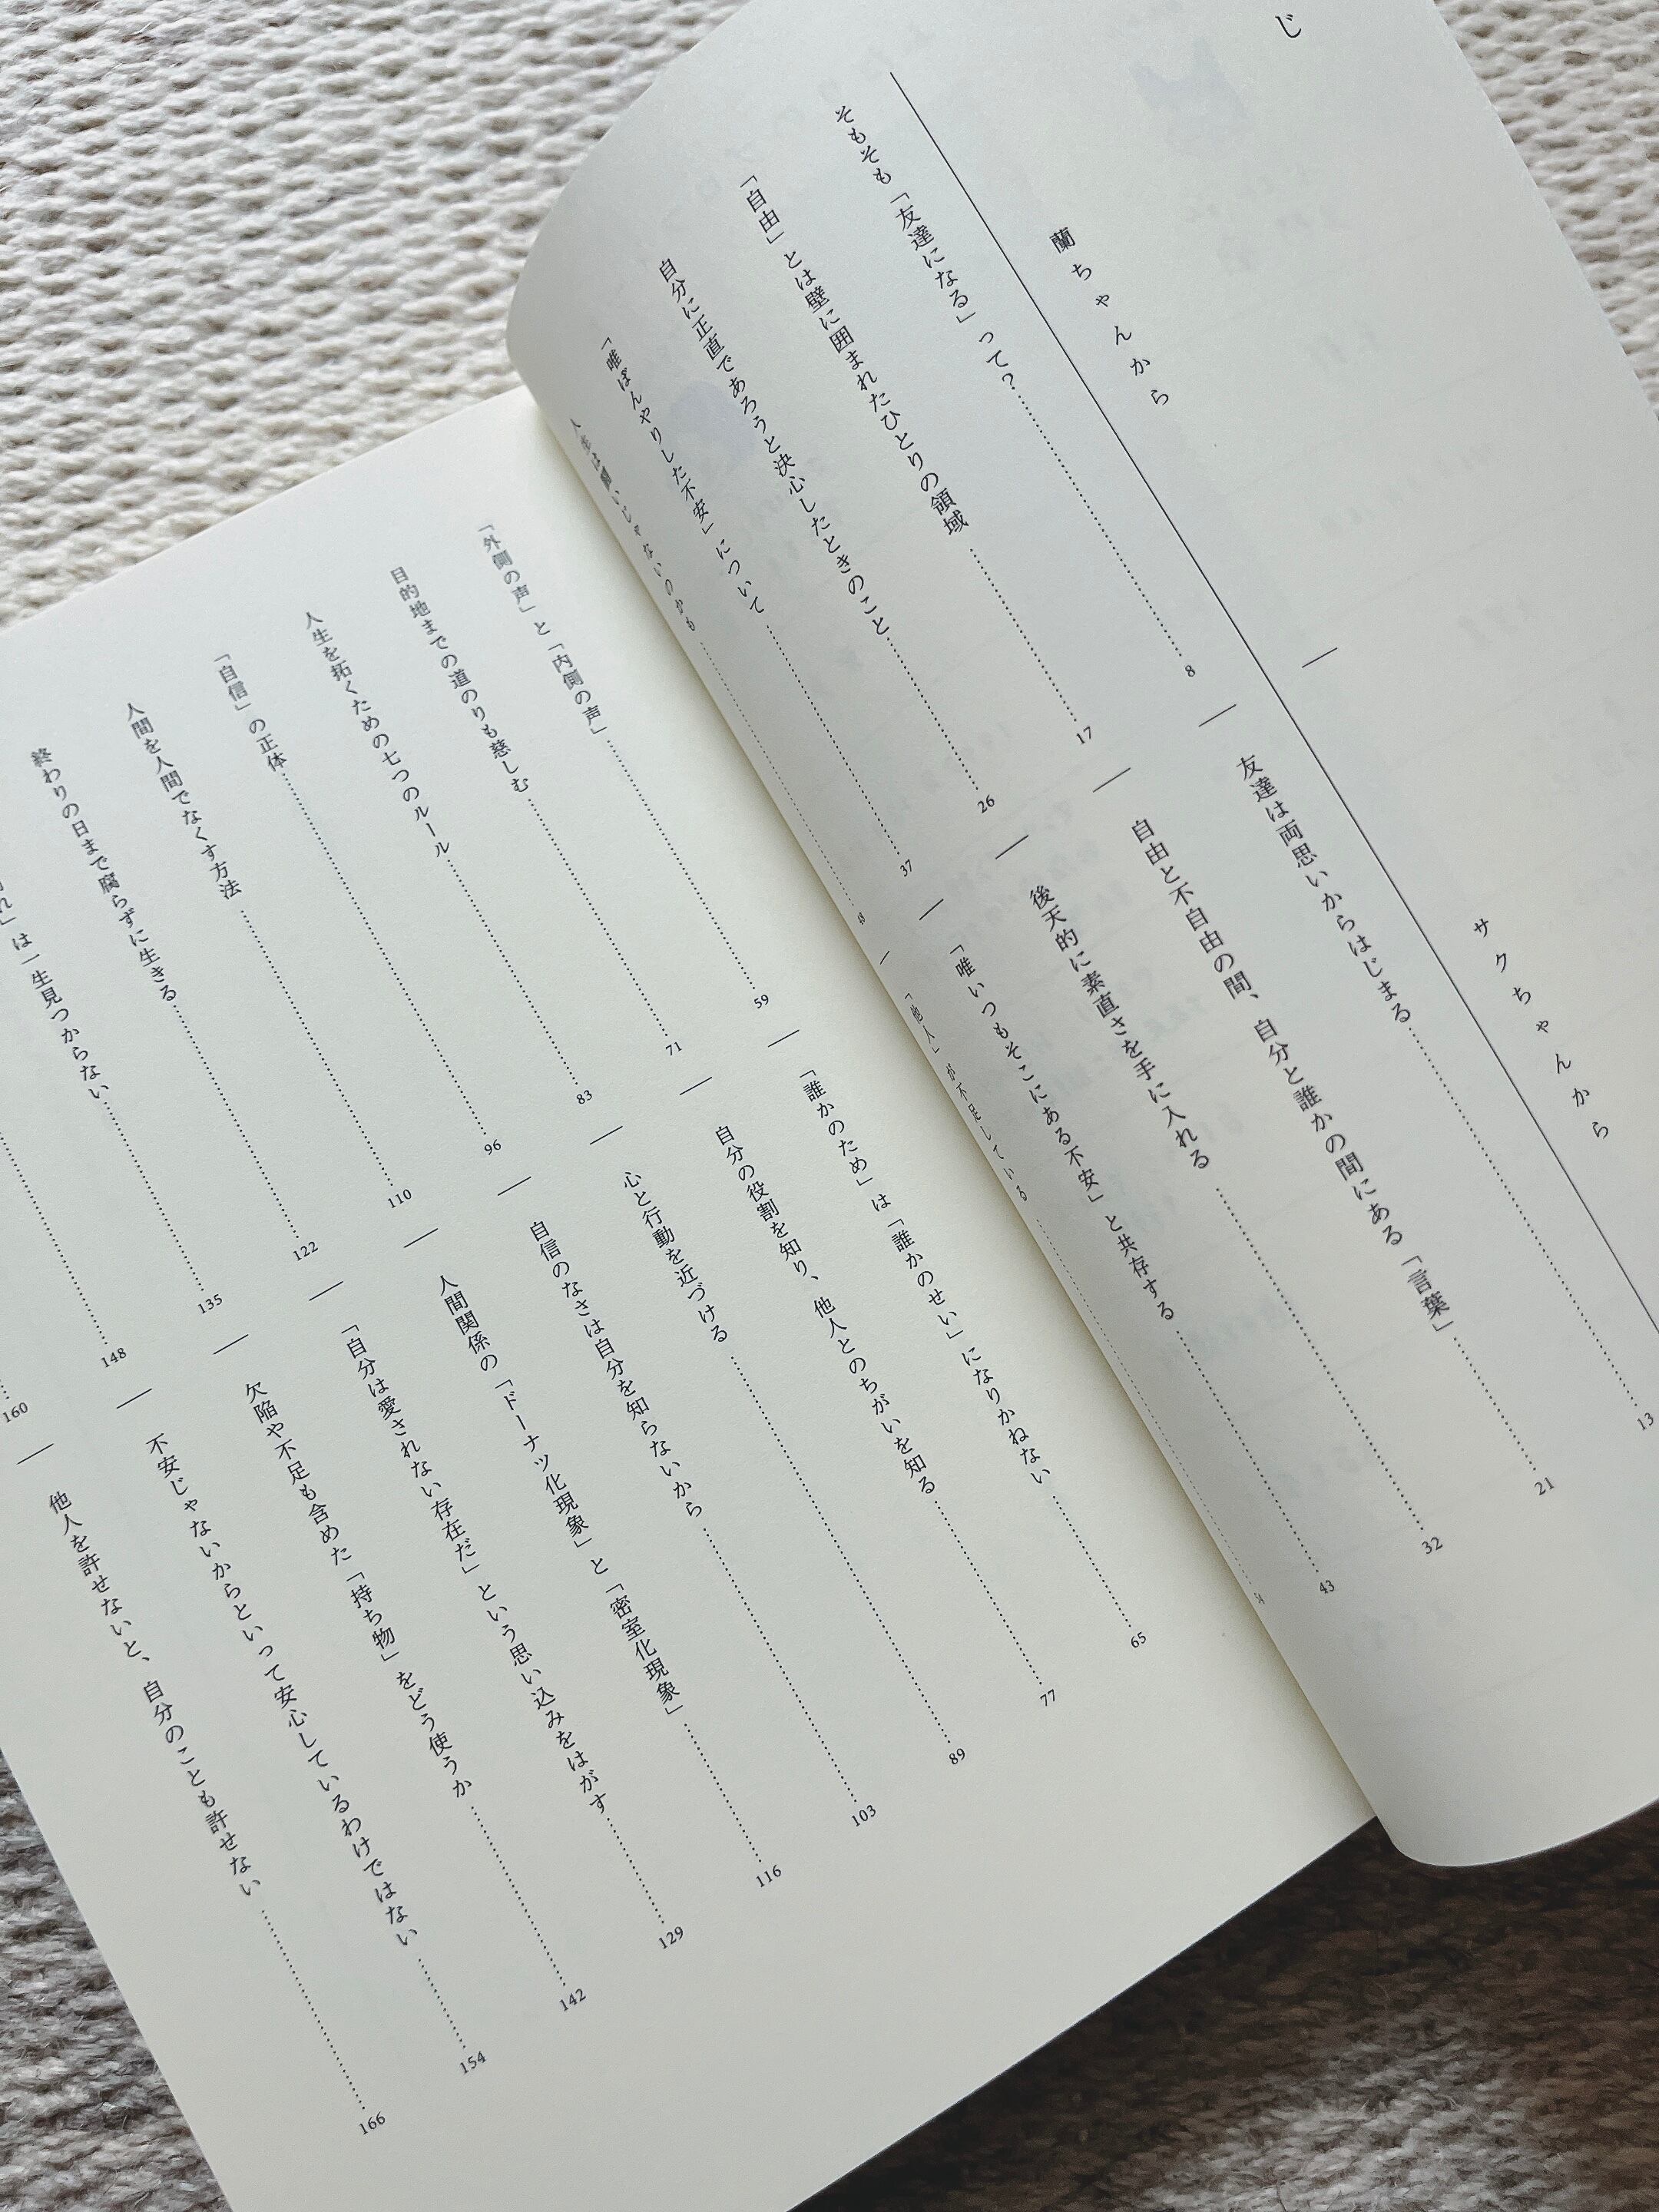 じ
蘭ちゃんから
サクちゃんから
そもそも「友達になる」って？ 8
友達は両思いからはじまる 13
「自由」とは壁に囲まれたひとりの領域 17
自由と不自由の間、自分と誰かの間にある「言葉」 21
自分に正直であろうと決心したときのこと 26
後天的に素直さを手に入れる 32
「唯ぼんやりした不安」について 37
「唯いつもそこにある不安」と共存する 43
人生は闘いじゃないのかも 48
「他人」が不足している 54
「外側の声」と「内側の声」 59
「誰かのため」は「誰かのせい」になりかねない 65
目的地までの道のりも慈しむ 71
自分の役割を知り、他人とのちがいを知る 77
人生を拓くための七つのルール 83
心と行動を近づける 89
「自信」の正体 96
自信のなさは自分を知らないから 103
人間を人間でなくす方法 110
人間関係の「ドーナツ化現象」と「密室化現象」 116
終わりの日まで腐らずに生きる 122
「自分は愛されない存在だ」という思い込みをはがす 129
れ」は一生見つからない 135
欠陥や不足も含めた「持ち物」をどう使うか 142
148
不安じゃないからといって安心しているわけではない 154
160
他人を許せないと、自分のことも許せない 166